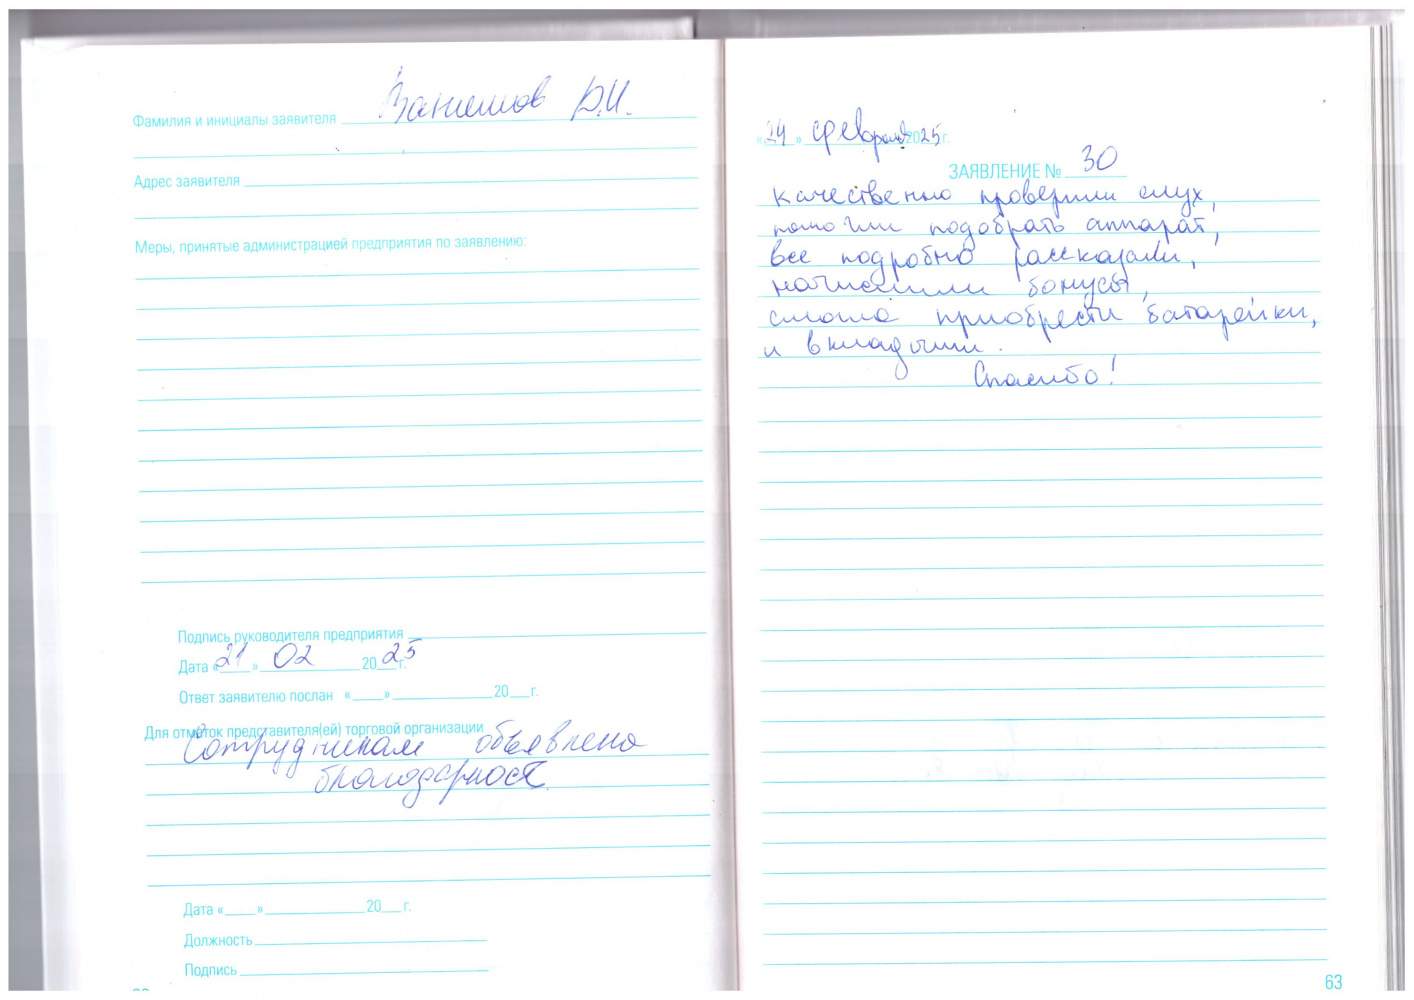 Фамилия и инициалы заявителя Д.И.
Адрес заявителя
Меры, принятые администрацией предприятия по заявлению:
Подпись руководителя предприятия
Дата «21» 02 2025 г.
Ответ заявителю послан «    »            20    г.
Для отметок представителя(ей) торговой организации
Сотрудникам объявлена
благодарность
Дата «    »            20    г.
Должность
Подпись
«24» февраля 2025 г.
ЗАЯВЛЕНИЕ № 30
качественно проверили слух,
помогли подобрать аппарат,
все подробно рассказали,
начислили бонусы,
смогла приобрести батарейки,
и вкладыши.
Спасибо!
63